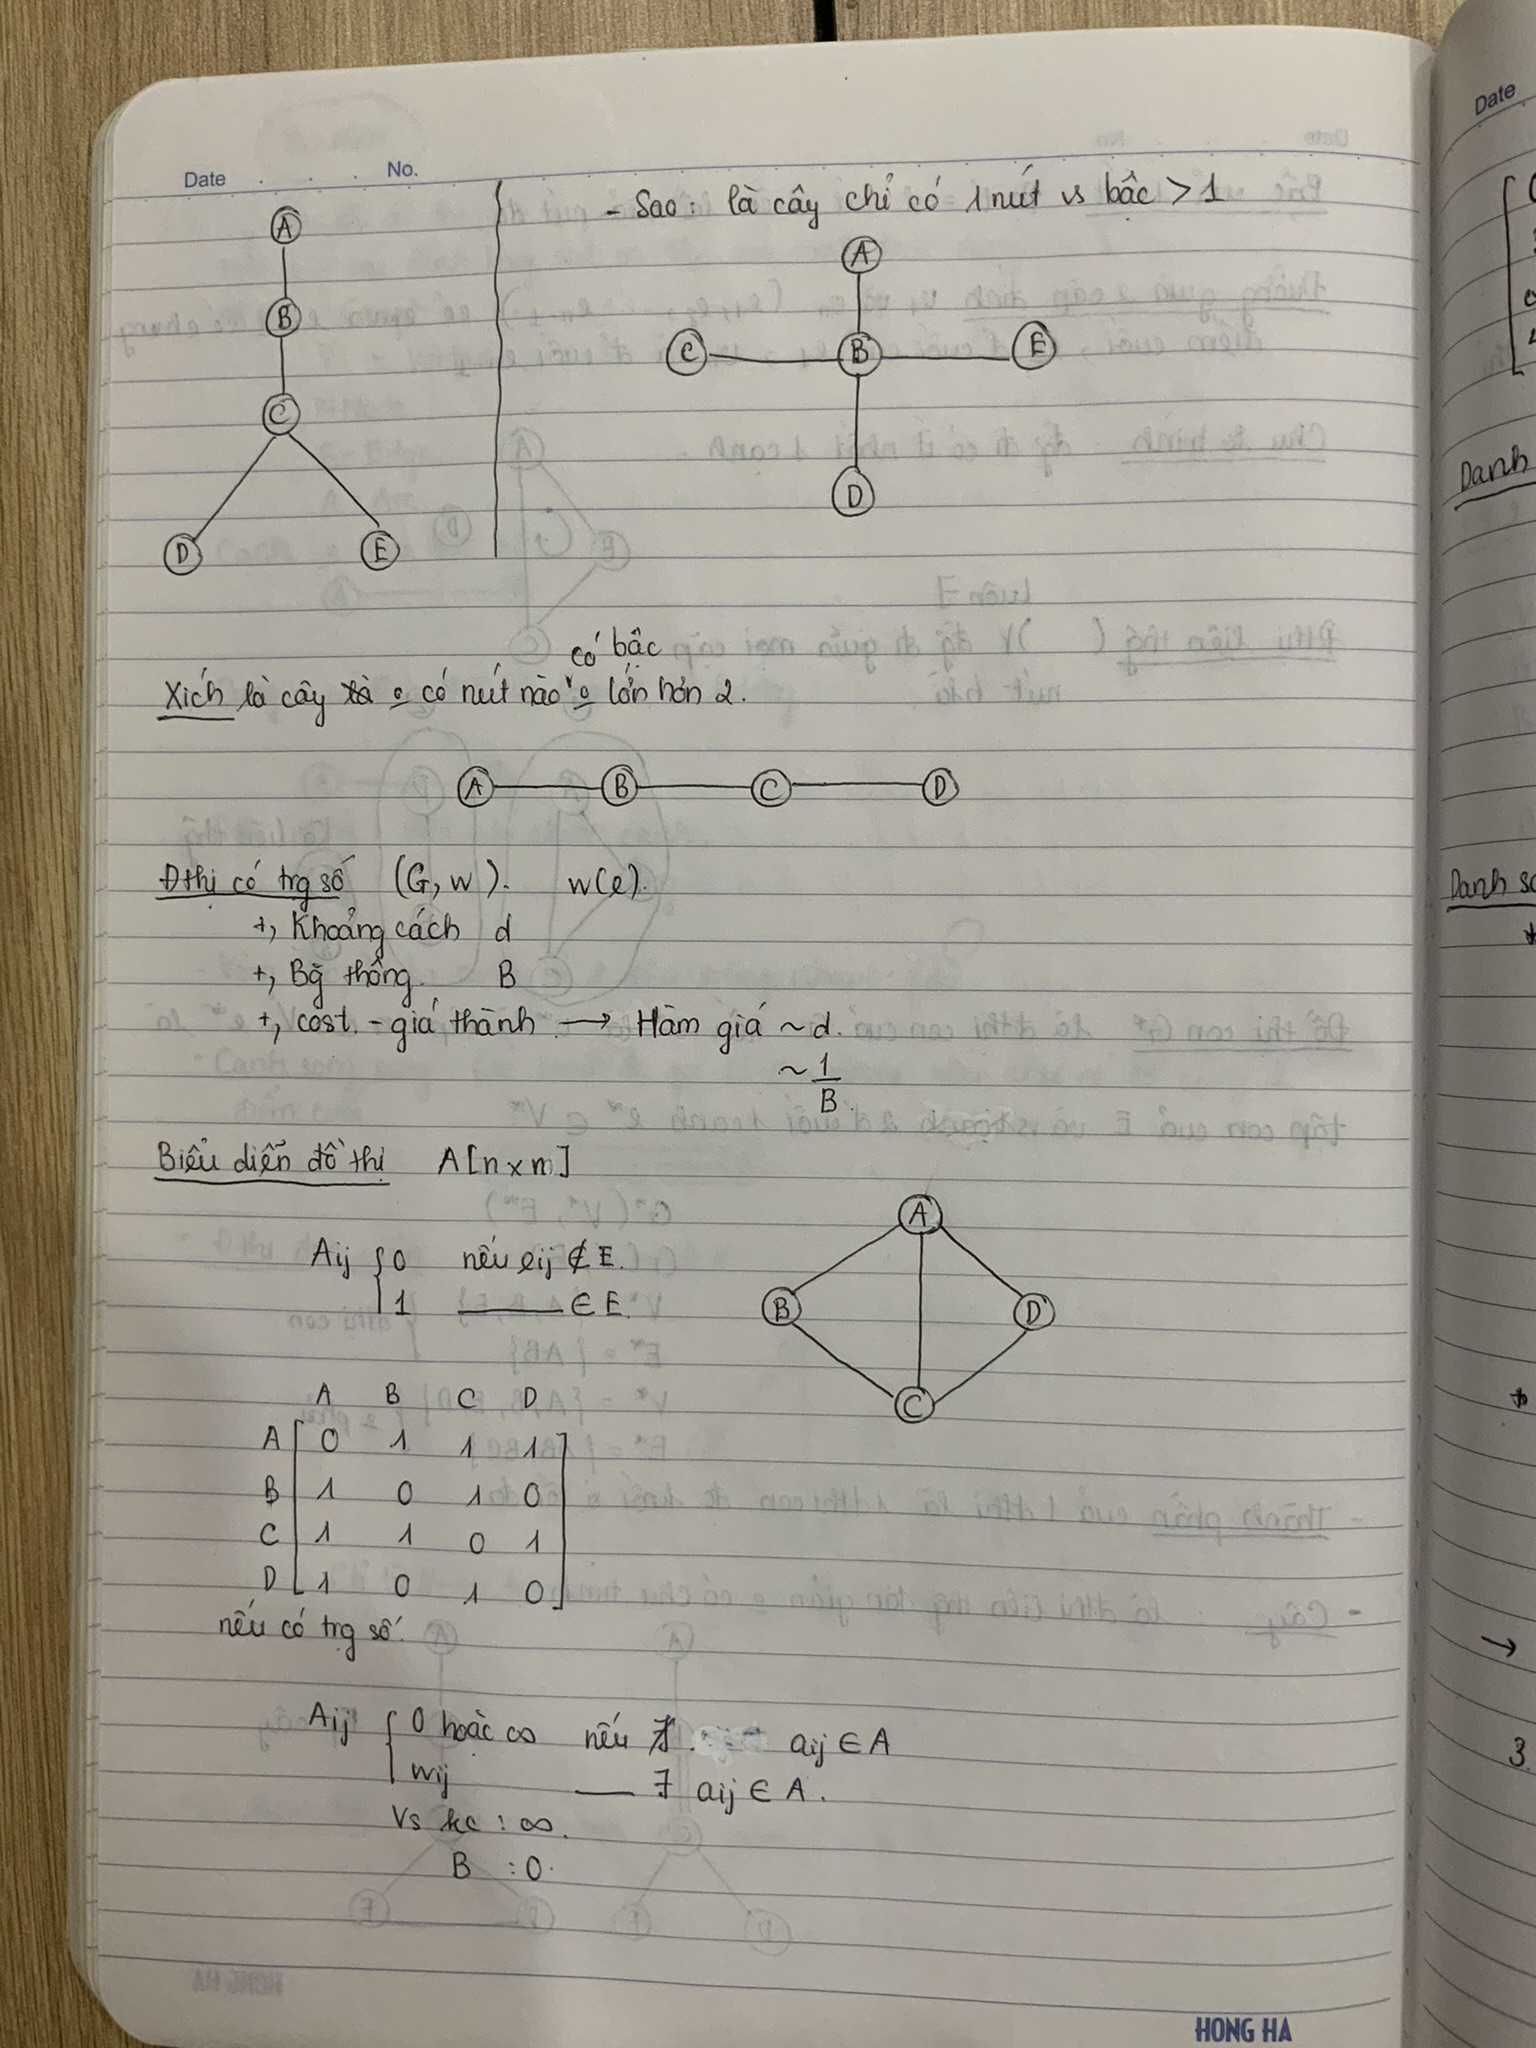 Date No.
A
B
C
D E
- Sao: là cây chỉ có 1 nút vs bậc > 1
A
C B E
D
có bậc
Xích là cây o có nút nào o lớn hơn 2.
A B C D
Đthị có trg số (G, w). w(e).
+, Khoảng cách d
+, Bg thông. B
+, cost. - giá thành → Hàm giá ~ d.
~ 1/B.
Biểu diễn đồ thị A[n x m]
Aij { 0 nếu eij ∉ E.
1 —— ∈ E.
A
B D
C
A B C D
A 0 1 1 1
B 1 0 1 0
C 1 1 0 1
D 1 0 1 0
nếu có trg số.
Aij { 0 hoặc ∞ nếu ∄ aij ∈ A
wij —— ∃ aij ∈ A.
Vs kc : ∞.
B : 0.
HONG HA
Date
Danh
Danh
→
3.